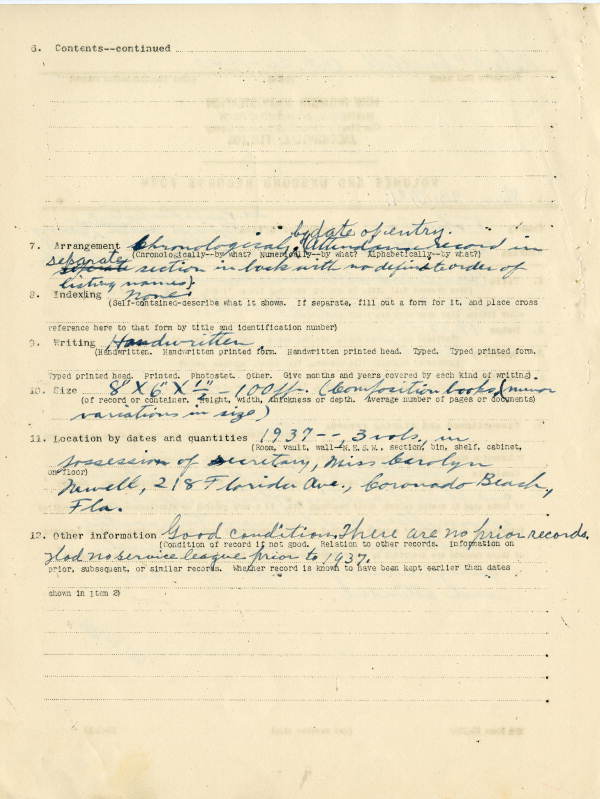 6. Contents--continued
by date of entry.
7. Arrangement Chronological, (Attendance record in
(Chronologically--by what? Numerically--by what? Alphabetically--by what?)
separate
seperate section in back with no definite order of
listing names).
8. Indexing None.
(Self-contained-describe what it shows. If separate, fill out a form for it, and place cross
reference here to that form by title and identification number)
9. Writing Handwritten.
(Handwritten. Handwritten printed form. Handwritten printed head. Typed. Typed printed form.
Typed printed head. Printed. Photostat. Other. Give months and years covered by each kind of writing)
10. Size 8" X 6" X ½" - 100 pp. (Composition books, minor
(of record or container. Height, width, thickness or depth. Average number of pages or documents)
variations in size)
11. Location by dates and quantities 1937--, 3 vols., in
(Room, vault, wall--N.E.S.W., section, bin, shelf, cabinet,
possession of secretary, Miss Carolyn
on floor)
Newell, 218 Florida Ave., Coronado Beach,
Fla.
12. Other information Good condition. There are no prior records.
(Condition of record if not good. Relation to other records. Information on
Had no service league prior to 1937.
prior, subsequent, or similar records. Whether record is known to have been kept earlier than dates
shown in item 2)